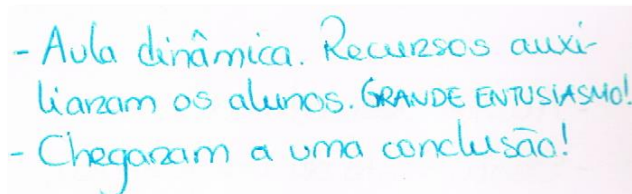 - Aula dinâmica. Recursos auxi-
liaram os alunos. GRANDE ENTUSIASMO!
- Chegaram a uma conclusão!